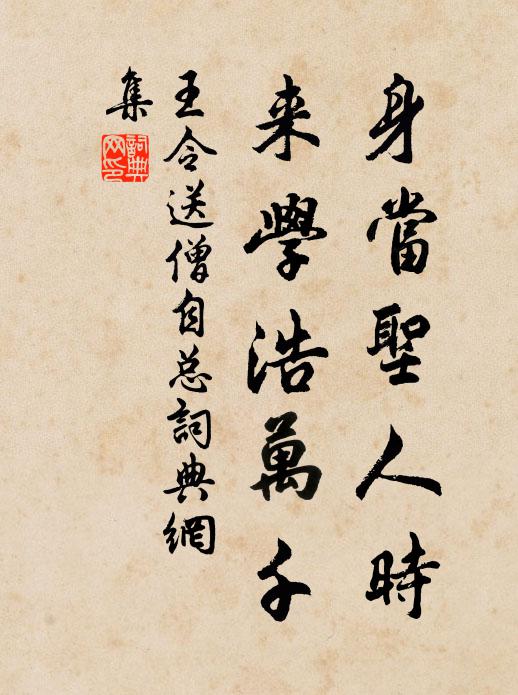 身當聖人時
来學浩萬千
王令送僧自总詞典網
集
詞典網印